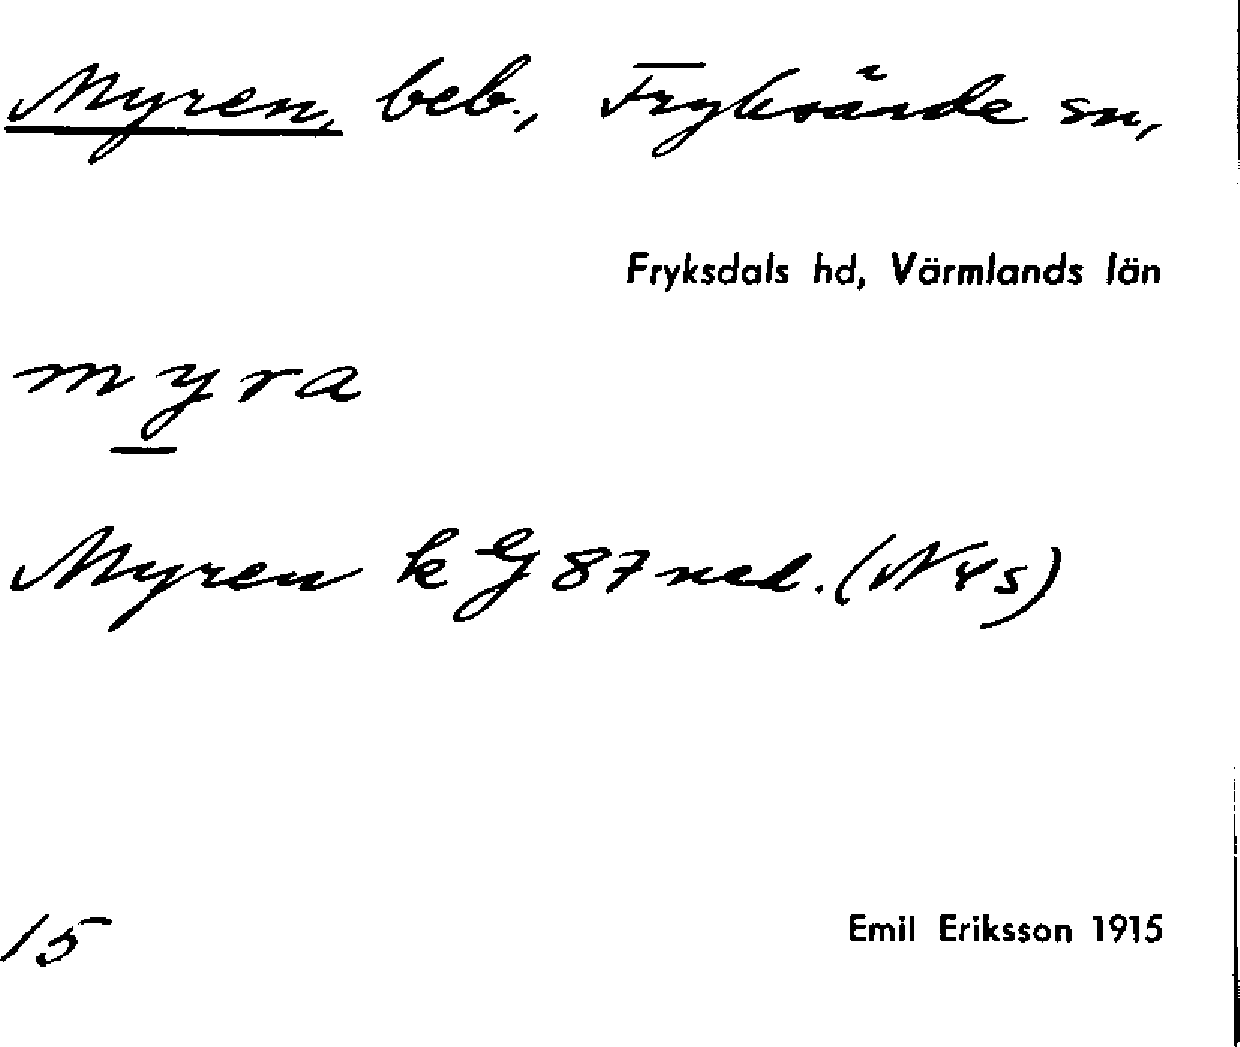 Myren, beb., Fryksände sn,
Fryksdals hd, Värmlands län
myra
Myren k EJ 87 ned. (N Ys)
15
Emil Eriksson 1915